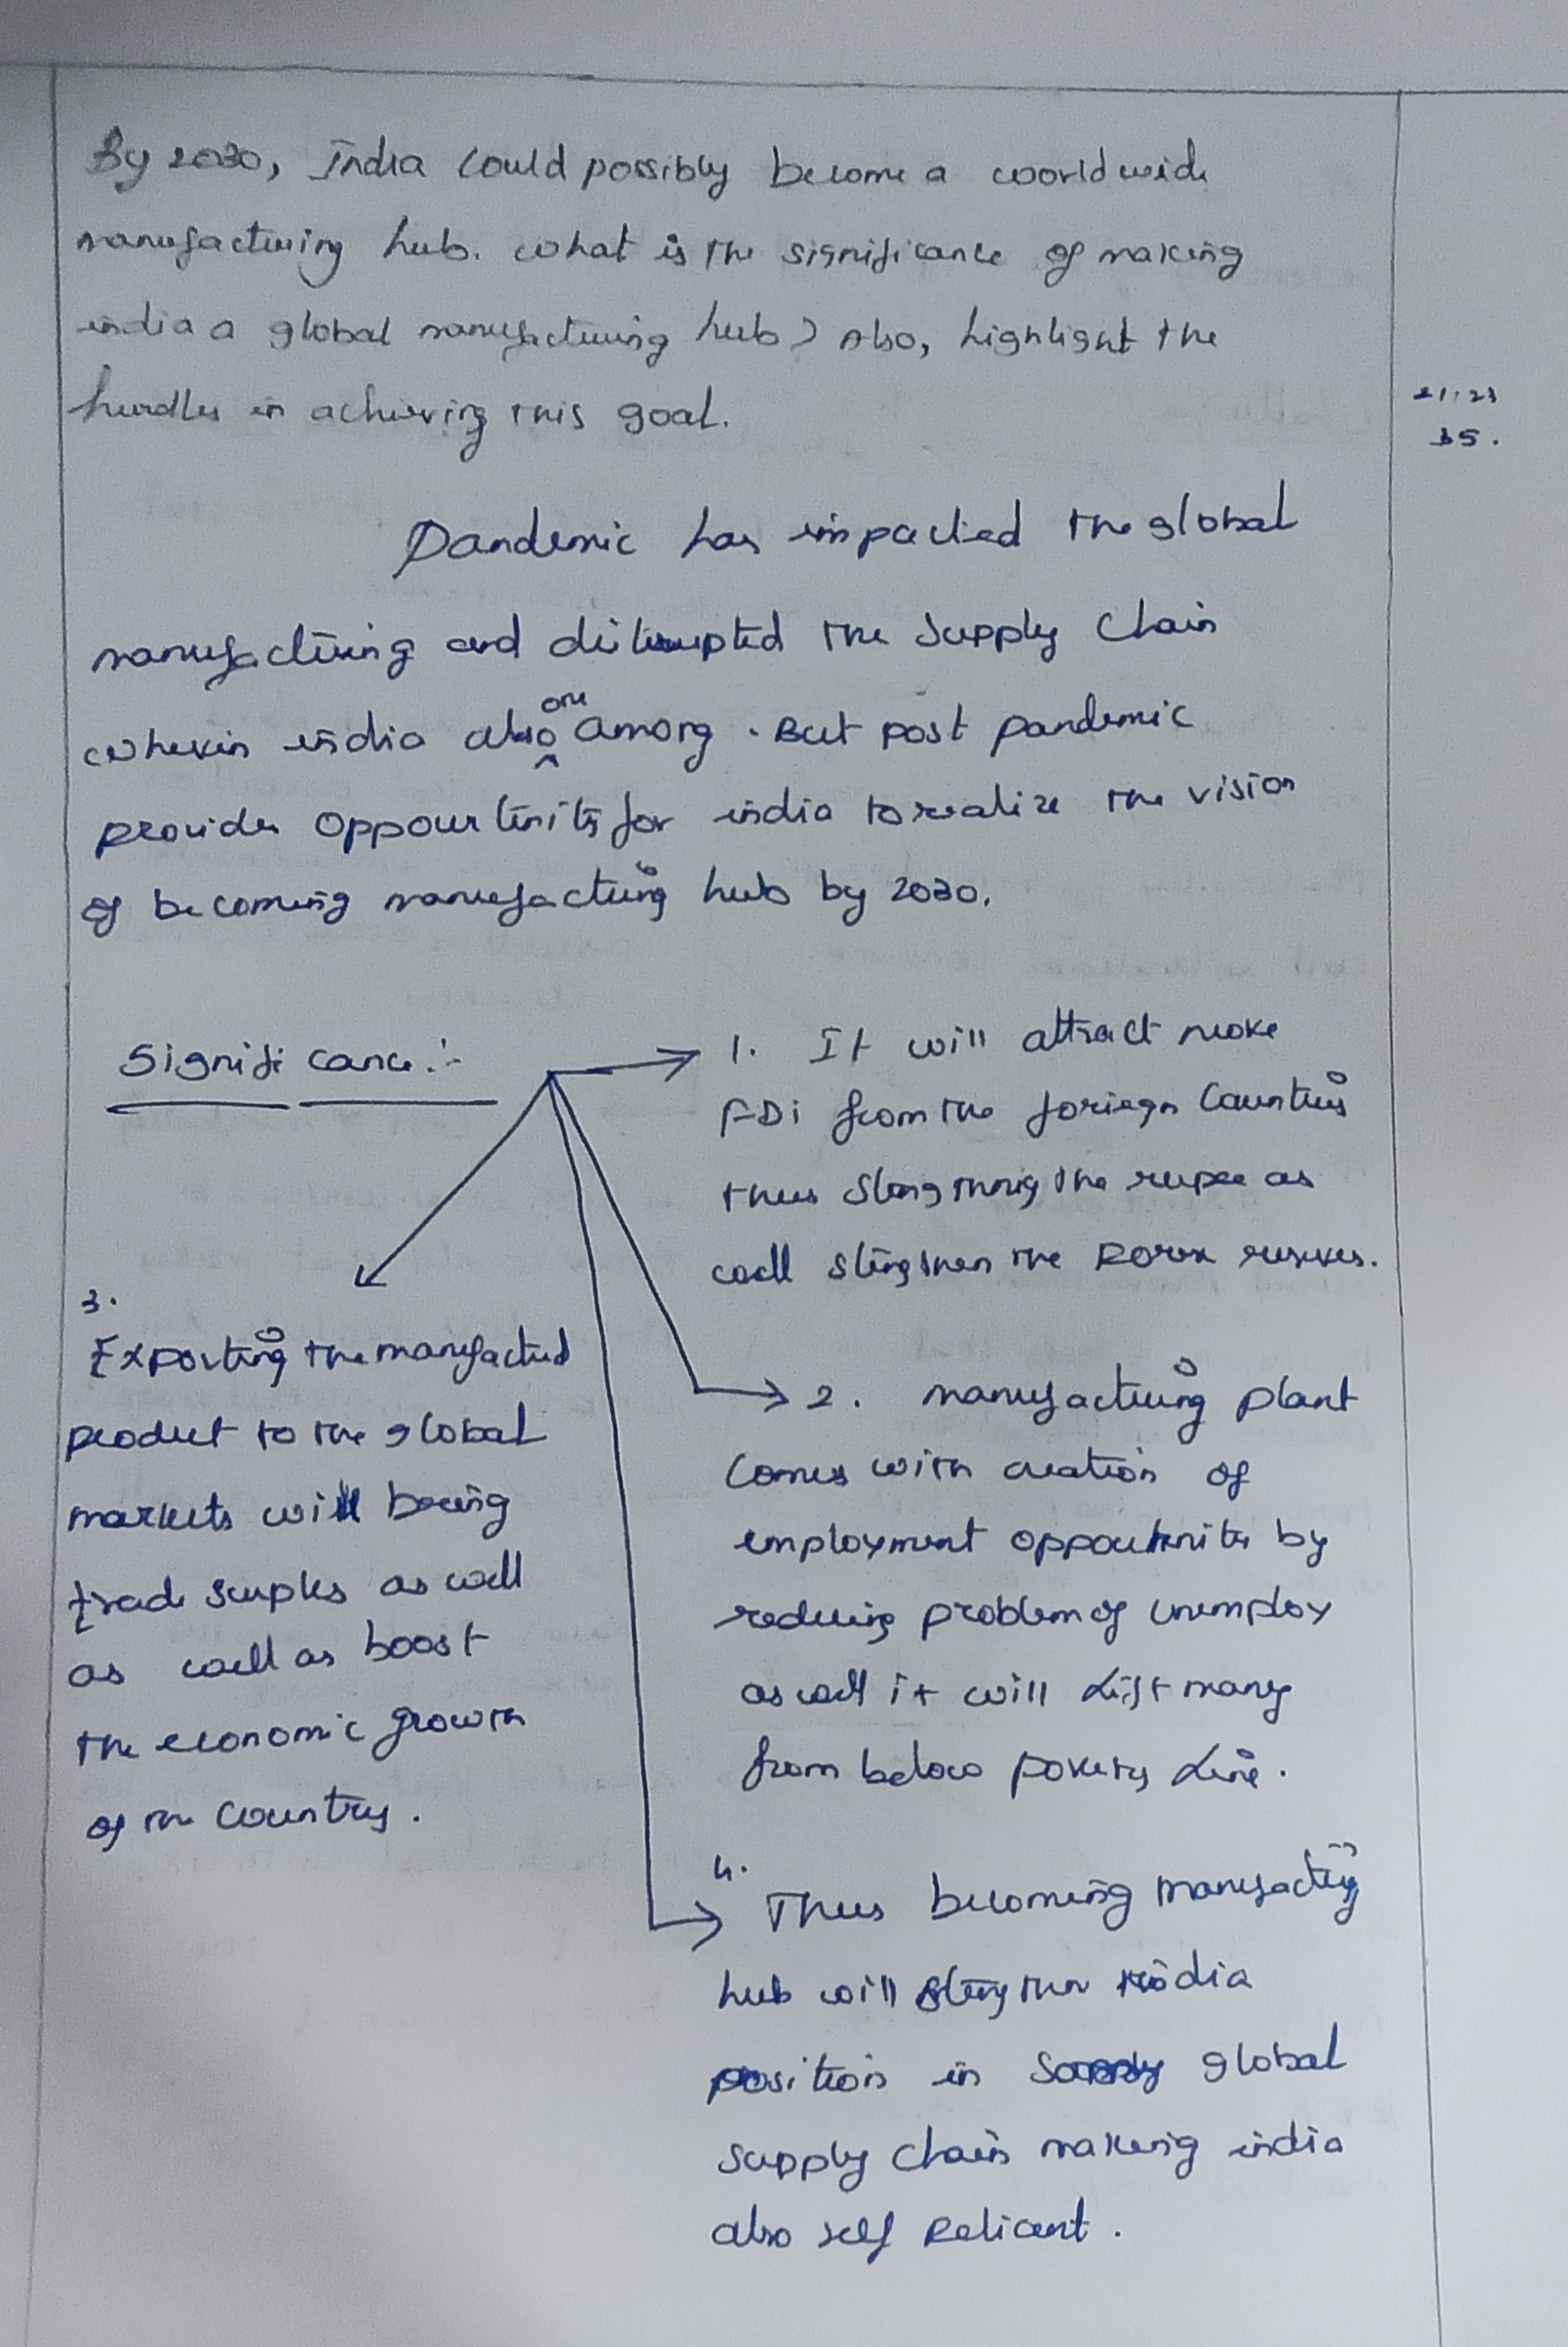 By 2030, India could possibly become a world wide
manufacturing hub. what is the significance of making
india a global manufacturing hub? Also, highlight the
hurdles in achieving this goal.
21:23
35.
Pandemic has impacted the global
manufacturing and disrupted the supply chain
wherein india also one among. But post pandemic
provides oppourtinity for india to realize the vision
of becoming manufacturing hub by 2030.
Significance:-
1. It will attract more
FDi from the foriegn Countries
thus strengthning the rupee as
well strengthen the Forex reserves.
2. manufacturing plant
comes with creation of
employment oppourtunites by
reducing problem of unemploy
as well it will lift many
from below poverty line.
3.
Exporting the manufactured
product to the global
markets will bring
trade surplus as well
as well as boost
the economic growth
of the country.
4.
Thus becoming manufacturing
hub will strengthen india
position in global
supply chain making india
also self reliant.